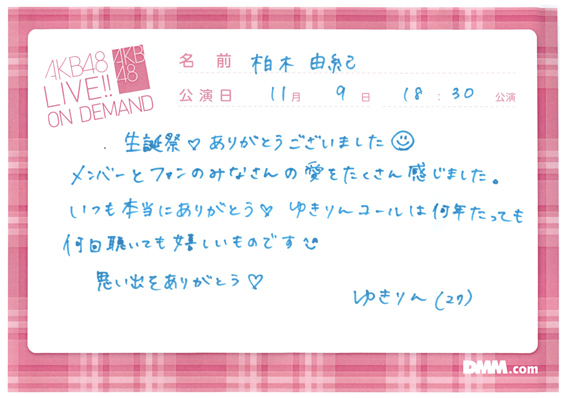 AKB48
LIVE!!
ON DEMAND
AKB
48
名 前 柏木 由紀
公演日 11月 9日 18:30 公演
生誕祭♡ありがとうございました☺
メンバーとファンのみなさんの愛をたくさん感じました。
いつも本当にありがとう♡ ゆきりんコールは何年たっても
何回聴いても嬉しいものです
思い出をありがとう♡
ゆきりん(27)
DMM.com